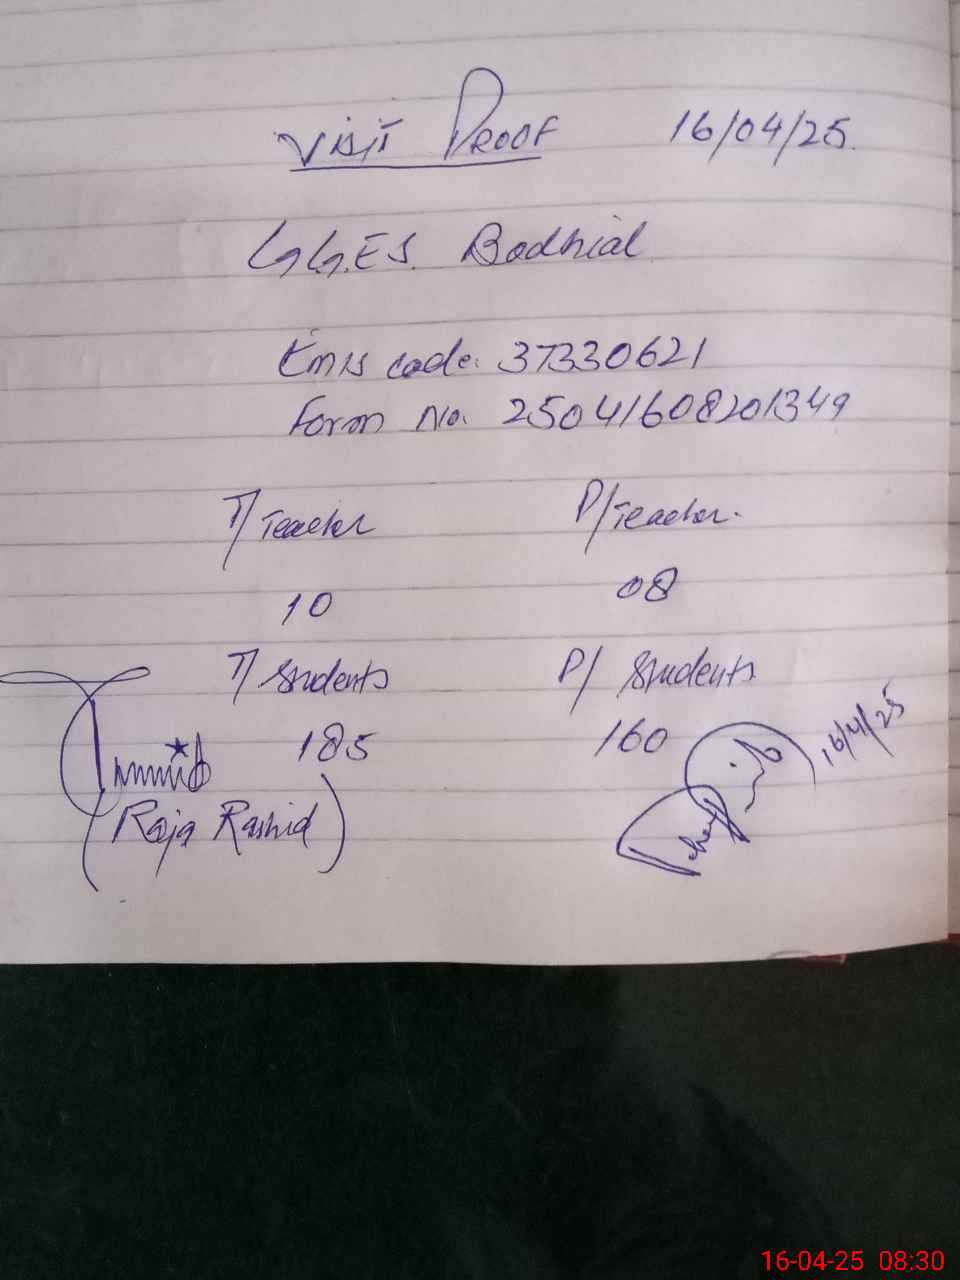 VISIT PROOF 16/04/25.
G.G.E.S. Badhial
Emis code: 37330621
Form No. 25041608201349
T/ Teacher P/ Teacher.
10 08
T/ Students P/ Students
185 160
16/4/25
(Raja Rashid)
16-04-25 08:30